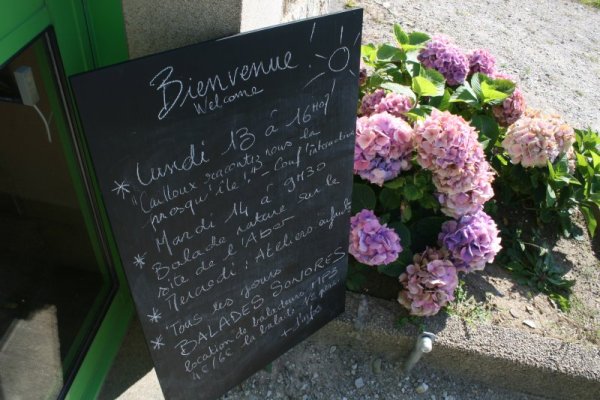 Bienvenue !
Welcome
Lundi 13 à 16H00
"Cailloux racontez nous la
presqu'île !" - Conf' Interactive
Mardi 14 à 9H30
Balade nature sur le
site de l'Aber
Mercredi : Ateliers
Tous les jours
BALADES SONORES
location de baladeurs MP3
la balade
+ d'infos